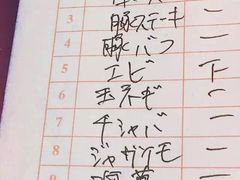 3 豚ステーキ 一
4 豚バラ 一
5 エビ 下
6 玉ネギ
7 チシャバ 一
8 ジャガイモ 一
9